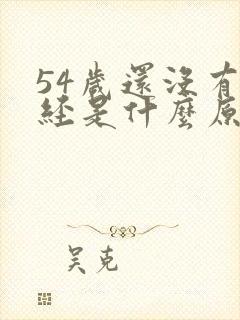 54歲還沒有
經是什麼原
吴克